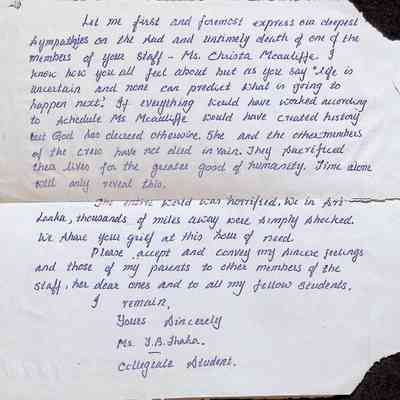 Let me first and foremost express our deepest
sympathies on the sad and untimely death of one of the
members of your staff - Ms. Christa Mcauliffe. I
know how you all feel about but as you say "life is
uncertain and none can predict what is going to
happen next". If everything would have worked according
to schedule Ms Mcauliffe would have created history
but God has decreed otherwise. She and the other members
of the crew have not died in vain. They sacrificed
their lives for the greater good of humanity. Time alone
will only reveal this.
The entire world was horrified. We in Sri
Lanka, thousands of miles away were simply shocked.
We share your grief at this hour of need.
Please accept and convey my sincere feelings
and those of my parents to other members of the
staff, her dear ones and to all my fellow students.
I remain,
Yours Sincerely
Ms. T.B.
Collegiate Student.